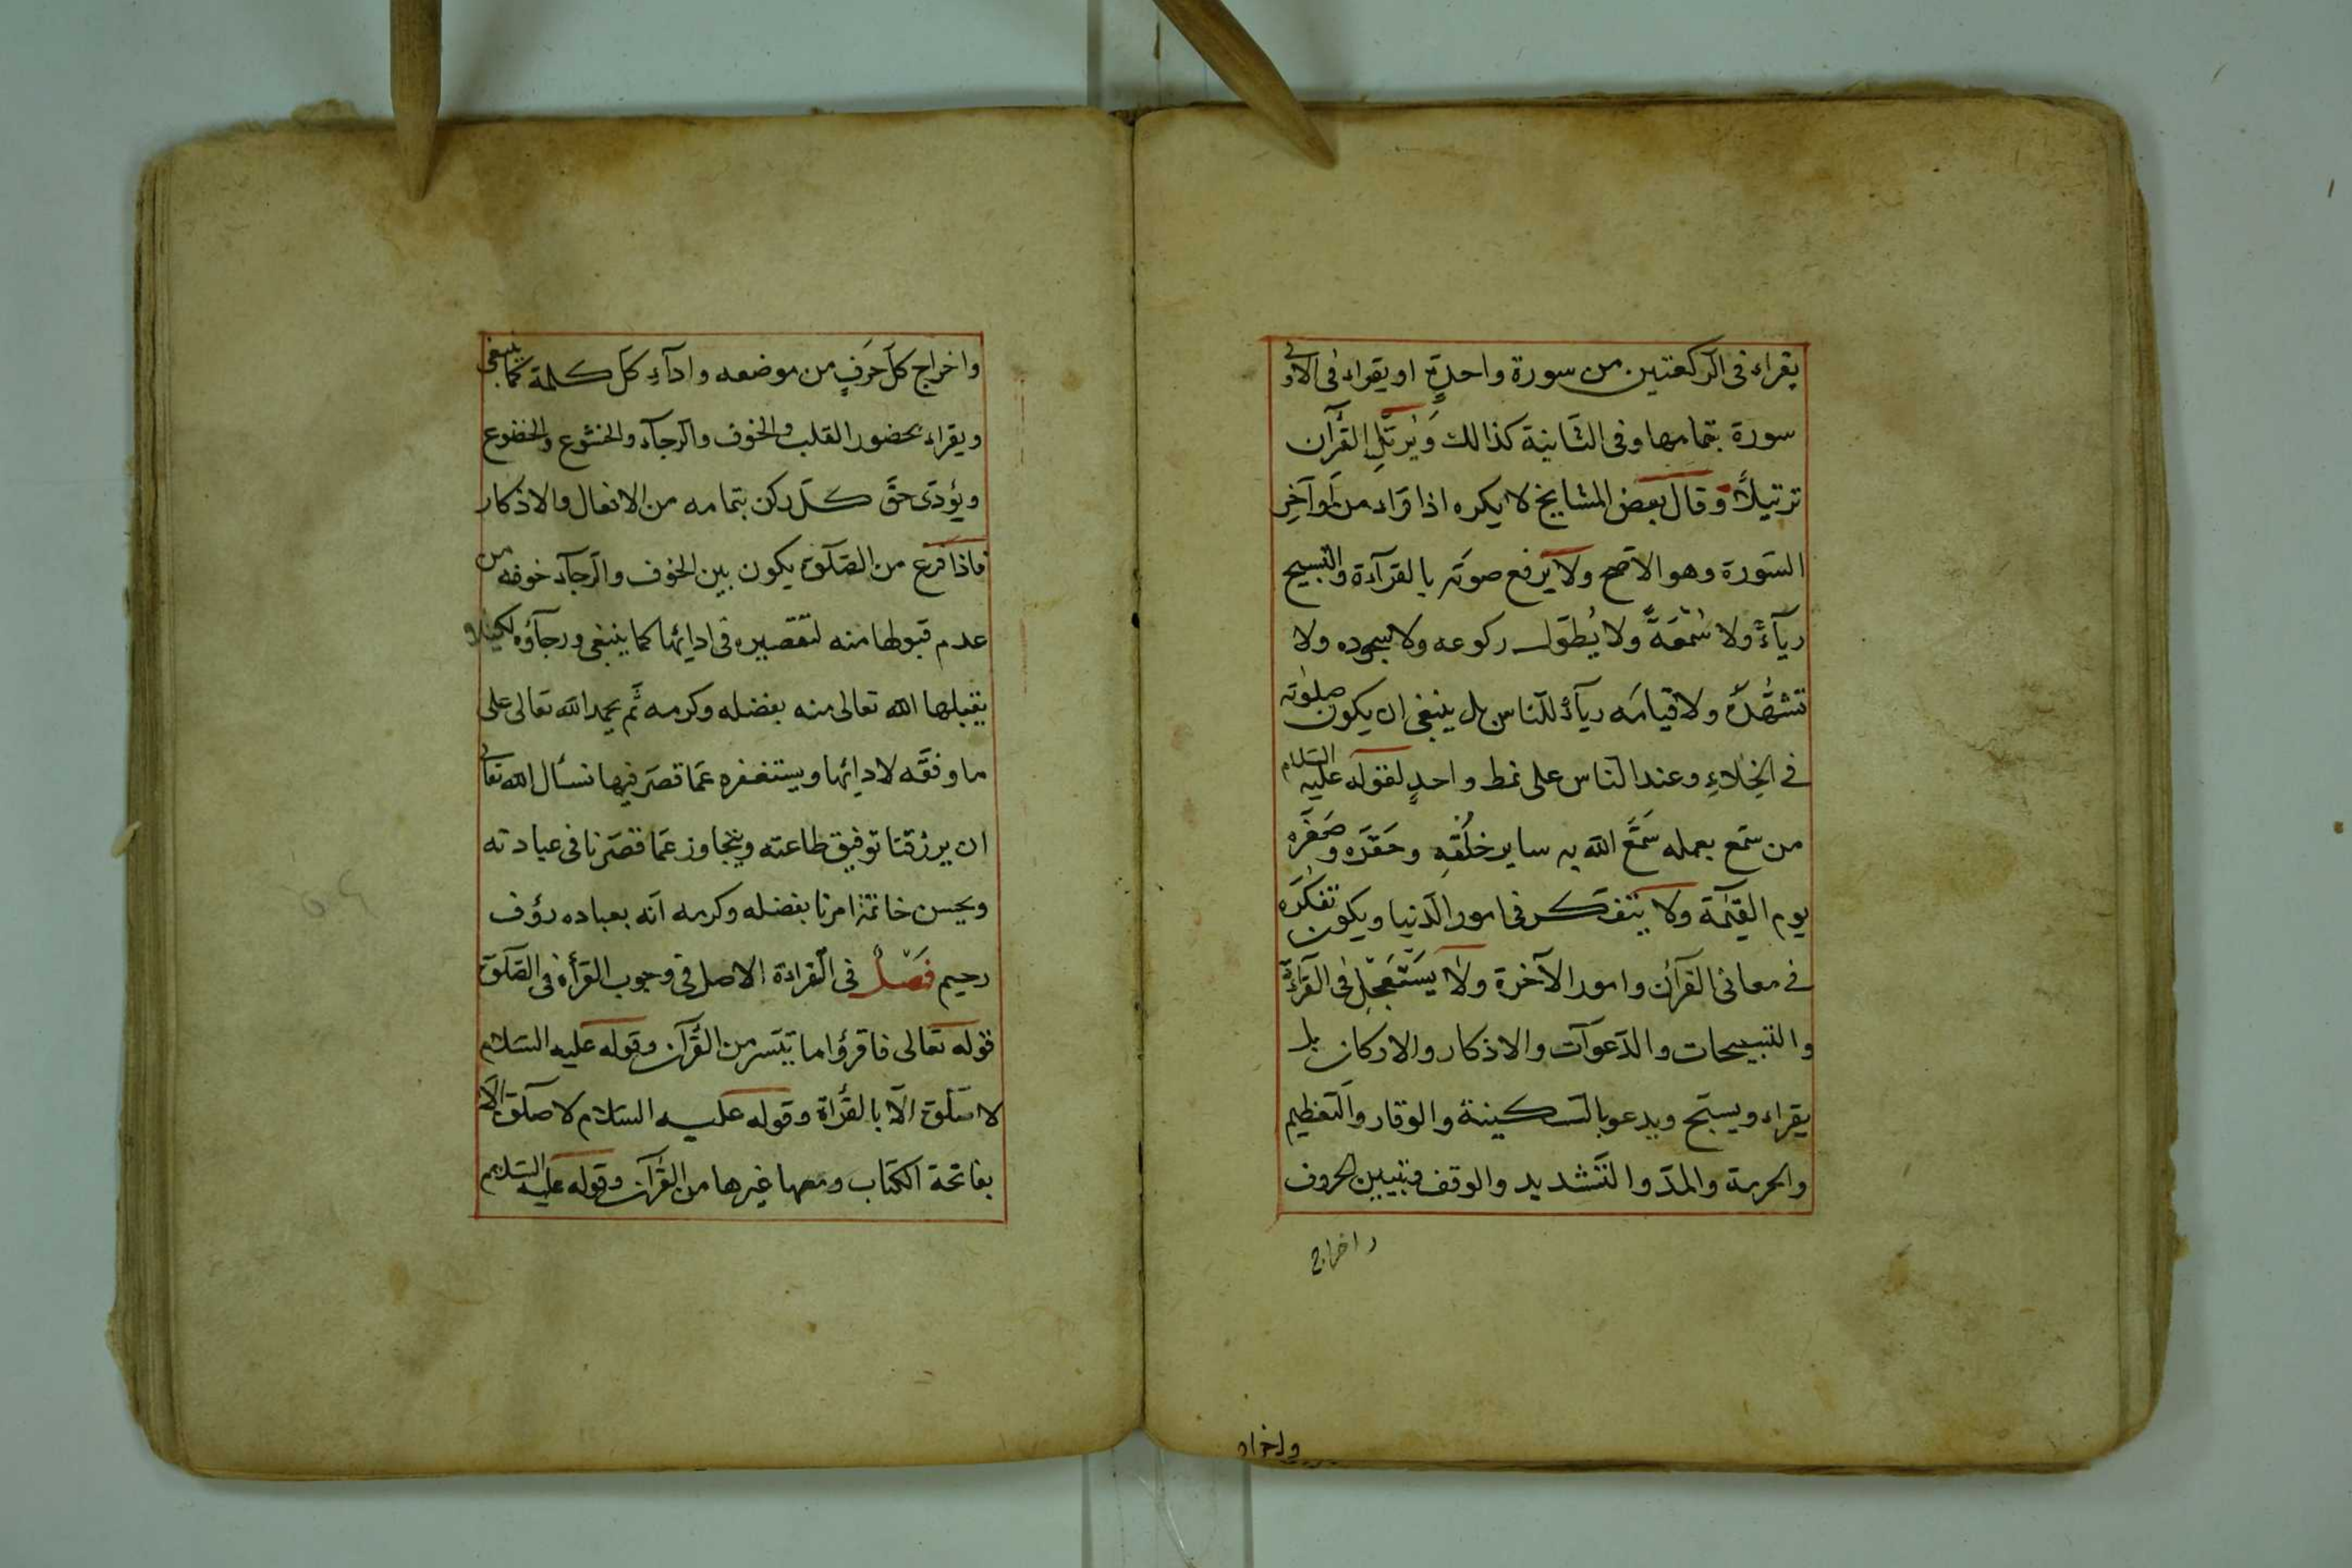 يقراء فى الركعتين من سورة واحدةٍ او يقراء فى الاولى
سورة بتمامها وفى الثانية كذالك وَيُرتّلِ القُرآن
ترتيلاً وقال بعض المشايخ لا يكره اذا قراء من اَوآخِر
السّورة وهو الاصّح ولا يرفع صوتَه بالقرآءة والتّسبيح
ريآءً ولا سُمْعَةً ولا يُطوّل ركوعه ولا سجوده ولا
تشهّدَهُ ولا قيامَه ريآءً للنّاس بل ينبغى ان يكون صلوتَه
فى الخلاءِ وعند النّاس على نمط واحدٍ لقوله عليه السّلام
من سمّع بعمله سَمَّعَ الله به ساير خلقِهِ وحَقّرَه وصَغّرَه
يوم القيٰمة ولا يتفكّر فى امور الدّنيا ويكون تفكّرَه
فى معانى القرآن وامور الآخرة ولا يسْتَعْجِل فى القرآءة
والتّسبيحات والدّعوآت والاذكار والاركان بل
يقراء ويسبّح ويدعو بالسّكينة والوقار والتّعظيم
والحرمة والمدّ والتّشديد والوقف وتبيين الحروف
واخراج
واخراج
واخراج كلّ حَرفٍ من موضعه وادآءِ كلّ كلمة كما ينبغى
ويقراء بحضور القلب والخوف والرّجآء والخشوع والخضوع
ويؤدّى حقَّ كلّ ركن بتمامه من الافعال والاذكار
فاذا فرغ من الصّلوة يكون بين الخوف والرّجآء خوفه من
عدم قبولها منه لتقصيره فى ادائها كما ينبغى ورجآؤه لكيلا
يقبلها الله تعالى منه بفضله وكرمه ثمّ يحمد الله تعالى على
ما وفقّه لادائها ويستغفره عمّا قصّر فيها نسأل الله تعالى
ان يرزقنا توفيق طاعته ويتجاوز عمّا قصّرنا فى عبادته
ويحسن خاتمة امرنا بفضله وكرمه انّه بعباده رؤف
رحيم فَصْلٌ فى القراءة الاصل فى وجوب القرأة فى الصّلوة
قوله تعالى فاقرؤا ما تيسّر من القُرآن وقوله عليه السّلام
لا صلوة الّا بالقرأة وقوله عليه السّلام لا صلوة الّا
بفاتحة الكتاب ومعها غيرها من القُرآن وقوله عليه السّلام